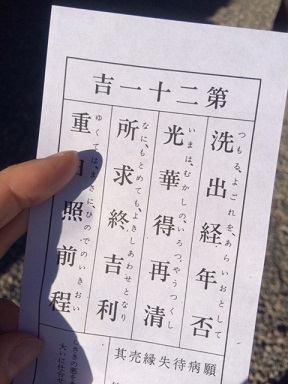 第二十一吉
つもる、よごれを、あらいおとして
洗出経年否
いまは、むかしの、いろつやうつくし
光華得再清
なに、もとめても、よきしあわせとなり
所求終吉利
ゆくては、まさに、ひのでのいきおい
重日照前程
願病待失縁売其